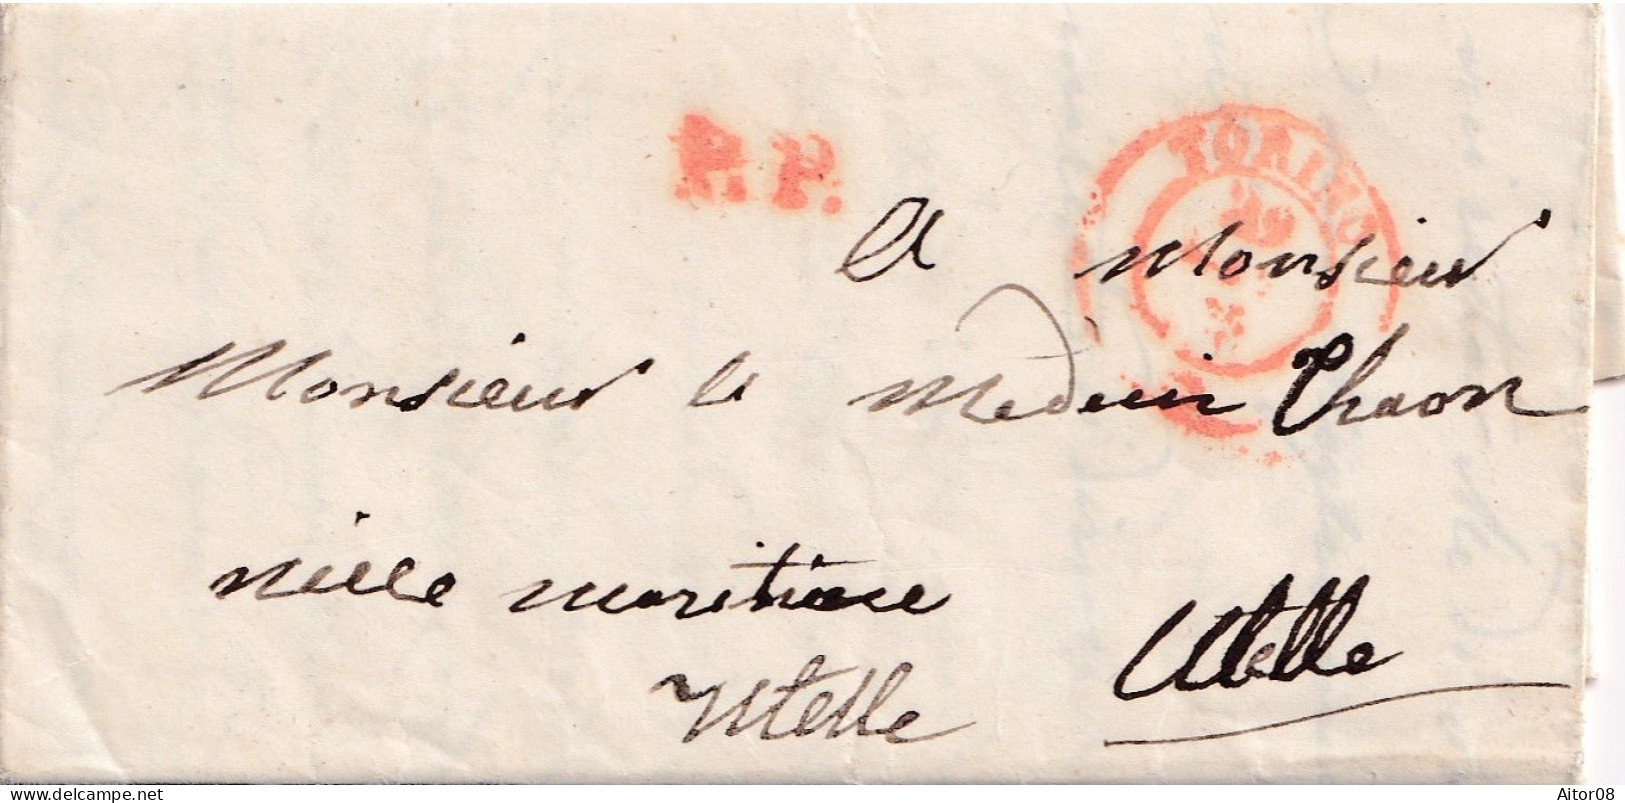 P.P.
TORINO
A Monsieur
Monsieur le Medecin Chaon
nice maritime
Utelle
Utelle
delcampe.net
Aitor08